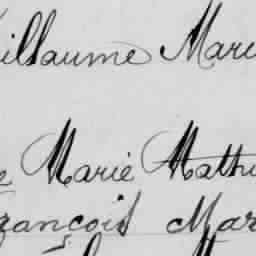 uillaume Marc
e Marie Mathu
rançois Mar